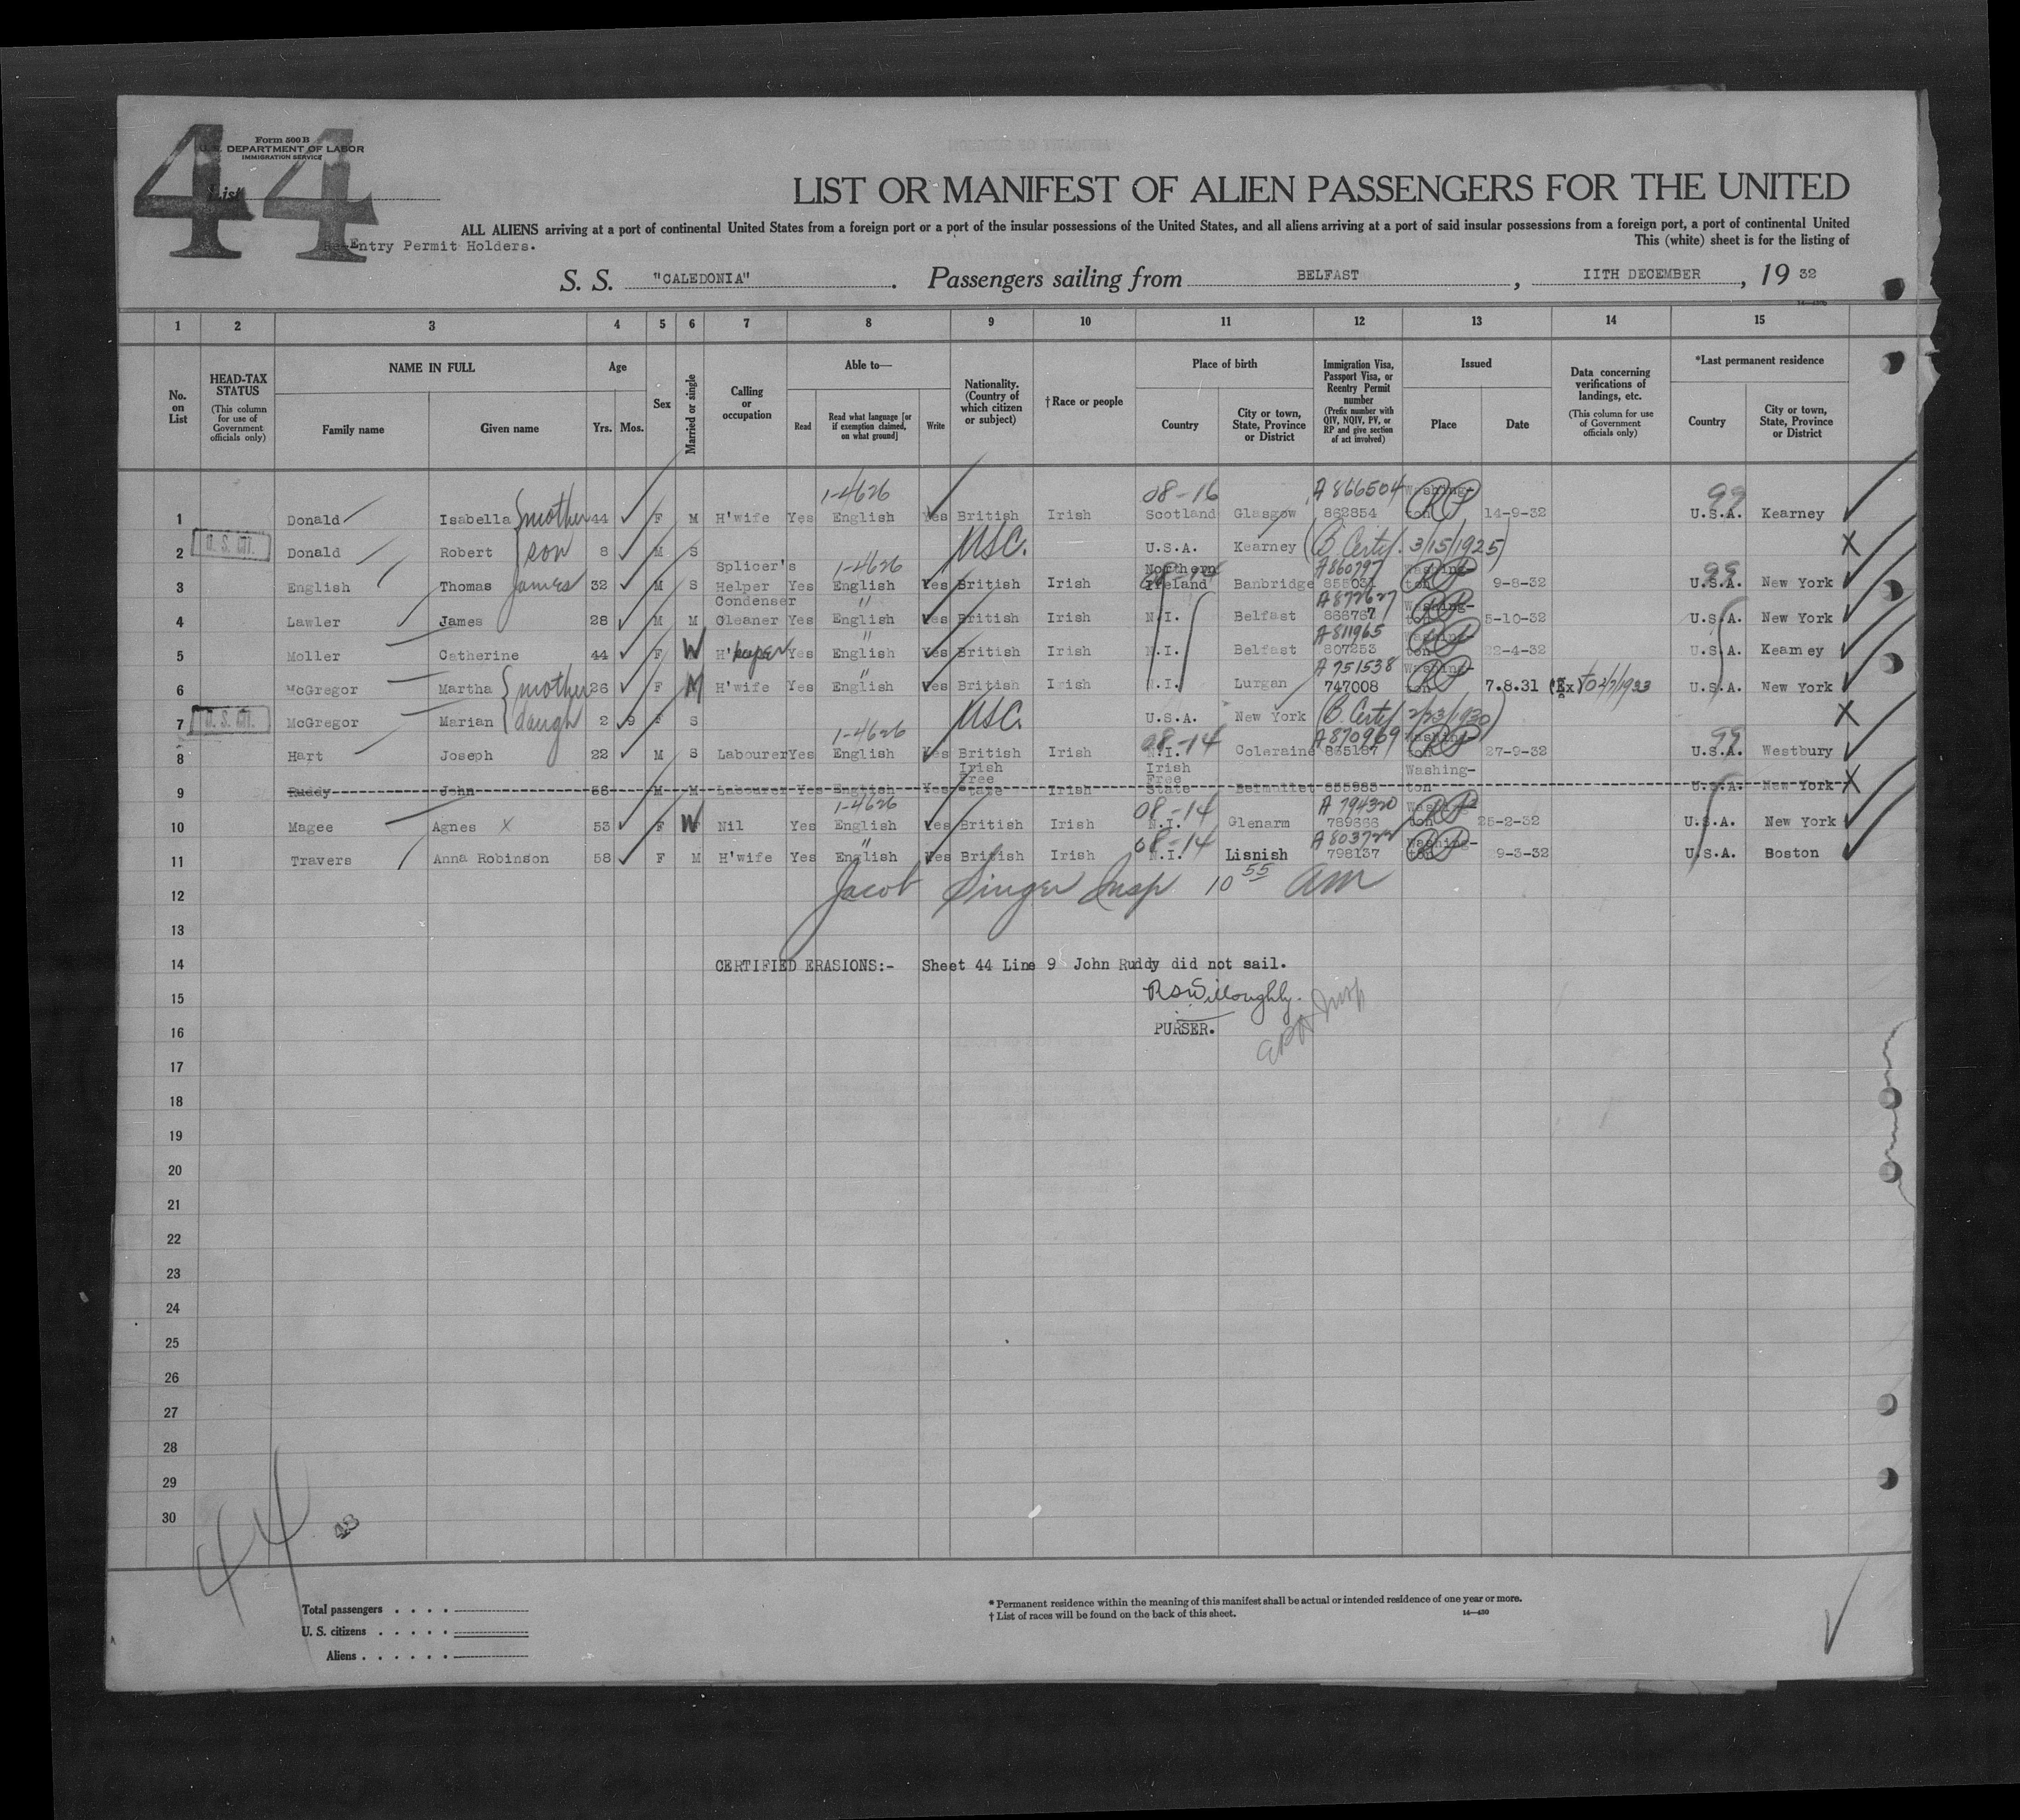 44
Form 500 B
U.S. DEPARTMENT OF LABOR
IMMIGRATION SERVICE
List
LIST OR MANIFEST OF ALIEN PASSENGERS FOR THE UNITED
ALL ALIENS arriving at a port of continental United States from a foreign port or a port of the insular possessions of the United States, and all aliens arriving at a port of said insular possessions from a foreign port, a port of continental United
Re-Entry Permit Holders.
This (white) sheet is for the listing of
S. S. "CALEDONIA". Passengers sailing from BELFAST, 11TH DECEMBER, 19 32
1 2 3 4 5 6 7 8 9 10 11 12 13 14 15
No. on List
HEAD-TAX STATUS (This column for use of Government officials only)
NAME IN FULL
Family name
Given name
Age
Yrs. Mos.
Sex
Married or single
Calling or occupation
Able to—
Read
Read what language [or if exemption claimed, on what ground]
Write
Nationality. (Country of which citizen or subject)
†Race or people
Place of birth
Country
City or town, State, Province or District
Immigration Visa, Passport Visa, or Reentry Permit number (Prefix number with QIV, NQIV, PV, or RP and give section of act involved)
Issued
Place
Date
Data concerning verifications of landings, etc. (This column for use of Government officials only)
*Last permanent residence
Country
City or town, State, Province or District
1-4626 08-16 A 866504 Washing- 99
1 Donald Isabella mother 44 F M H'wife Yes English Yes British Irish Scotland Glasgow 862854 ton 14-9-32 U.S.A. Kearney
2 U. S. Cit. Donald Robert son 8 M S USC. U.S.A. Kearney (B. Certif. 3/15/1925) X
Splicer's 1-4626 Northern A 860797 Washing- 99
3 English Thomas James 32 M S Helper Yes English Yes British Irish Ireland Banbridge 855031 ton 9-8-32 U.S.A. New York
Condenser " A 872627 Washing-
4 Lawler James 28 M M Cleaner Yes English Yes British Irish N.I. Belfast 868767 ton 5-10-32 U.S.A. New York
" A 811965 Washing-
5 Moller Catherine 44 F W H'keeper Yes English Yes British Irish N.I. Belfast 807253 ton 22-4-32 U.S.A. Kearney
" A 751538 Washing-
6 McGregor Martha mother 26 F M H'wife Yes English Yes British Irish N.I. Lurgan 747008 ton 7.8.31 U.S.A. New York
7 U. S. Cit. McGregor Marian daugh 2 9 F S USC. U.S.A. New York (B. Certif 2/23/1930) X
1-4626 08-14 A 870969 Washing- 99
8 Hart Joseph 22 M S Labourer Yes English Yes British Irish N.I. Coleraine 865187 ton 27-9-32 U.S.A. Westbury
Irish Free Irish Free Washing-
9 Ruddy John 56 M M Labourer Yes English Yes State Irish State Belmullet 855985 ton U.S.A. New York X
1-4626 08-14 A 794320 Washing-
10 Magee Agnes X 53 F W Nil Yes English Yes British Irish N.I. Glenarm 789666 ton 25-2-32 U.S.A. New York
" 08-14 A 803722 Washing-
11 Travers Anna Robinson 58 F M H'wife Yes English Yes British Irish N.I. Lisnish 798137 ton 9-3-32 U.S.A. Boston
12 Jacob Singer Insp 10 55 am
13
14 CERTIFIED ERASIONS:- Sheet 44 Line 9 John Ruddy did not sail.
15 Willoughby.
16 PURSER.
17
18
19
20
21
22
23
24
25
26
27
28
29
30
44 43
Total passengers
U. S. citizens
Aliens
* Permanent residence within the meaning of this manifest shall be actual or intended residence of one year or more.
† List of races will be found on the back of this sheet.
14—430